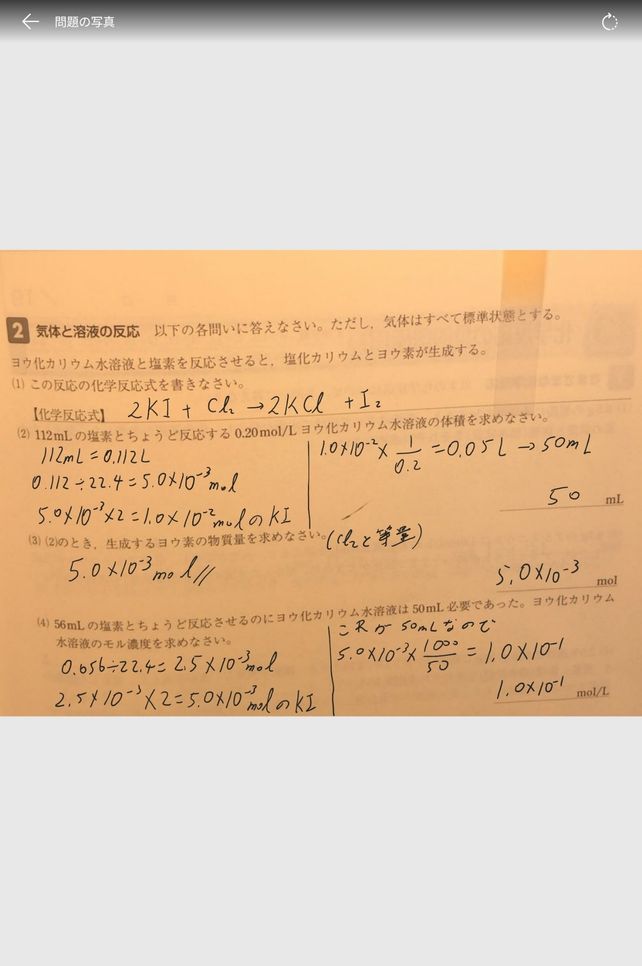 問題の写真
2 気体と溶液の反応 以下の各問いに答えなさい。ただし，気体はすべて標準状態とする。
ヨウ化カリウム水溶液と塩素を反応させると，塩化カリウムとヨウ素が生成する。
(1) この反応の化学反応式を書きなさい。
【化学反応式】 2KI + Cl₂ → 2KCl + I₂
(2) 112mLの塩素とちょうど反応する0.20mol/Lヨウ化カリウム水溶液の体積を求めなさい。
112mL = 0.112L
0.112÷22.4=5.0×10⁻³mol
5.0×10⁻³×2=1.0×10⁻²molのKI
1.0×10⁻²×1/0.2=0.05L→50mL
50 mL
(3) (2)のとき，生成するヨウ素の物質量を求めなさい。(Cl₂と等量)
5.0×10⁻³mol//
5.0×10⁻³ mol
(4) 56mLの塩素とちょうど反応させるのにヨウ化カリウム水溶液は50mL必要であった。ヨウ化カリウム
水溶液のモル濃度を求めなさい。
0.056÷22.4=2.5×10⁻³mol
2.5×10⁻³×2=5.0×10⁻³molのKI
これが50mLなので
5.0×10⁻³×1000/50=1.0×10⁻¹
1.0×10⁻¹ mol/L